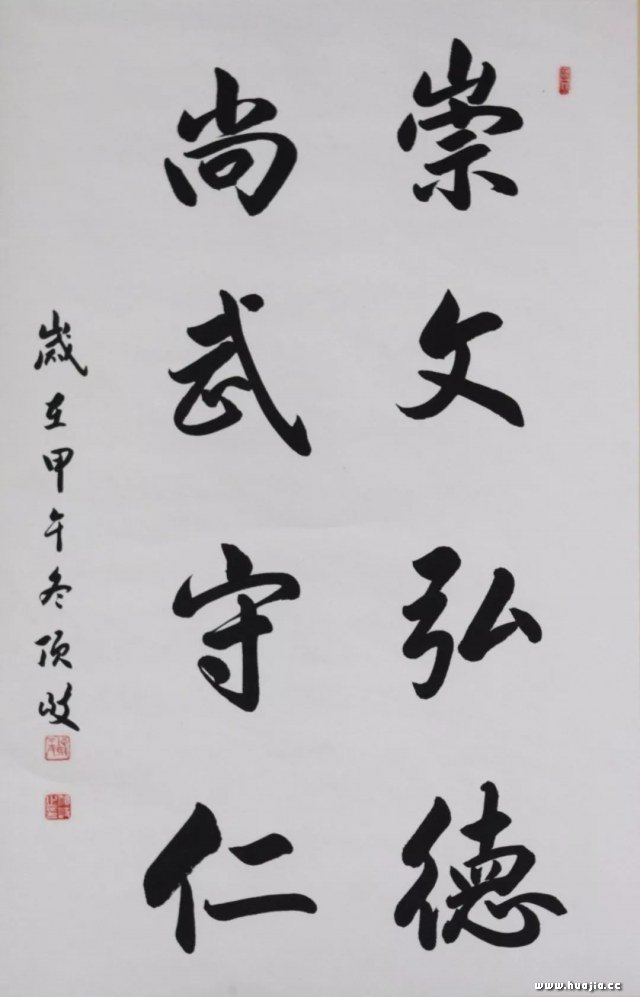 崇文弘德
尚武守仁
歲在甲午冬顶峻
www.huajia.cc